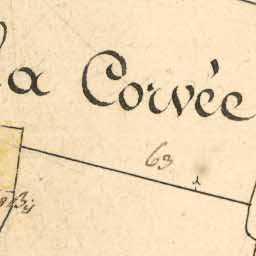 la Corvée
63